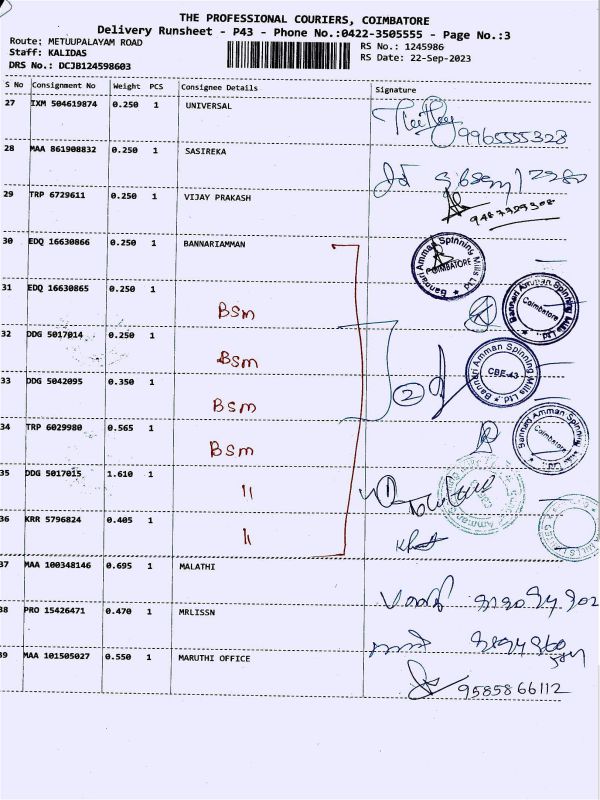 THE PROFESSIONAL COURIERS, COIMBATORE
Delivery Runsheet - P43 - Phone No.:0422-3505555 - Page No.:3
Route: METUUPALAYAM ROAD
RS No.: 1245986
Staff: KALIDAS
RS Date: 22-Sep-2023
DRS No.: DCJB124598603
S No Consignment No Weight PCS Consignee Details Signature
27 IXM 504619874 0.250 1 UNIVERSAL
9965555328
28 MAA 861908832 0.250 1 SASIREKA
29 TRP 6729611 0.250 1 VIJAY PRAKASH
30 EDQ 16630866 0.250 1 BANNARIAMMAN
Bannari Amman Spinning Mills Ltd
COIMBATORE
31 EDQ 16630865 0.250 1
BSM
Bannari Amman Spinning Mills Ltd
Coimbatore
32 DDG 5017014 0.250 1
BSM
Bannari Amman Spinning Mills Ltd
CBE-43
33 DDG 5042095 0.350 1
BSM
2
34 TRP 6029980 0.565 1
BSM
Bannari Amman Spinning Mills Ltd
Coimbatore
35 DDG 5017015 1.610 1
11
1
36 KRR 5796824 0.405 1
11
37 MAA 100348146 0.695 1 MALATHI
38 PRO 15426471 0.470 1 MRLISSN
39 MAA 101505027 0.550 1 MARUTHI OFFICE
9585866112